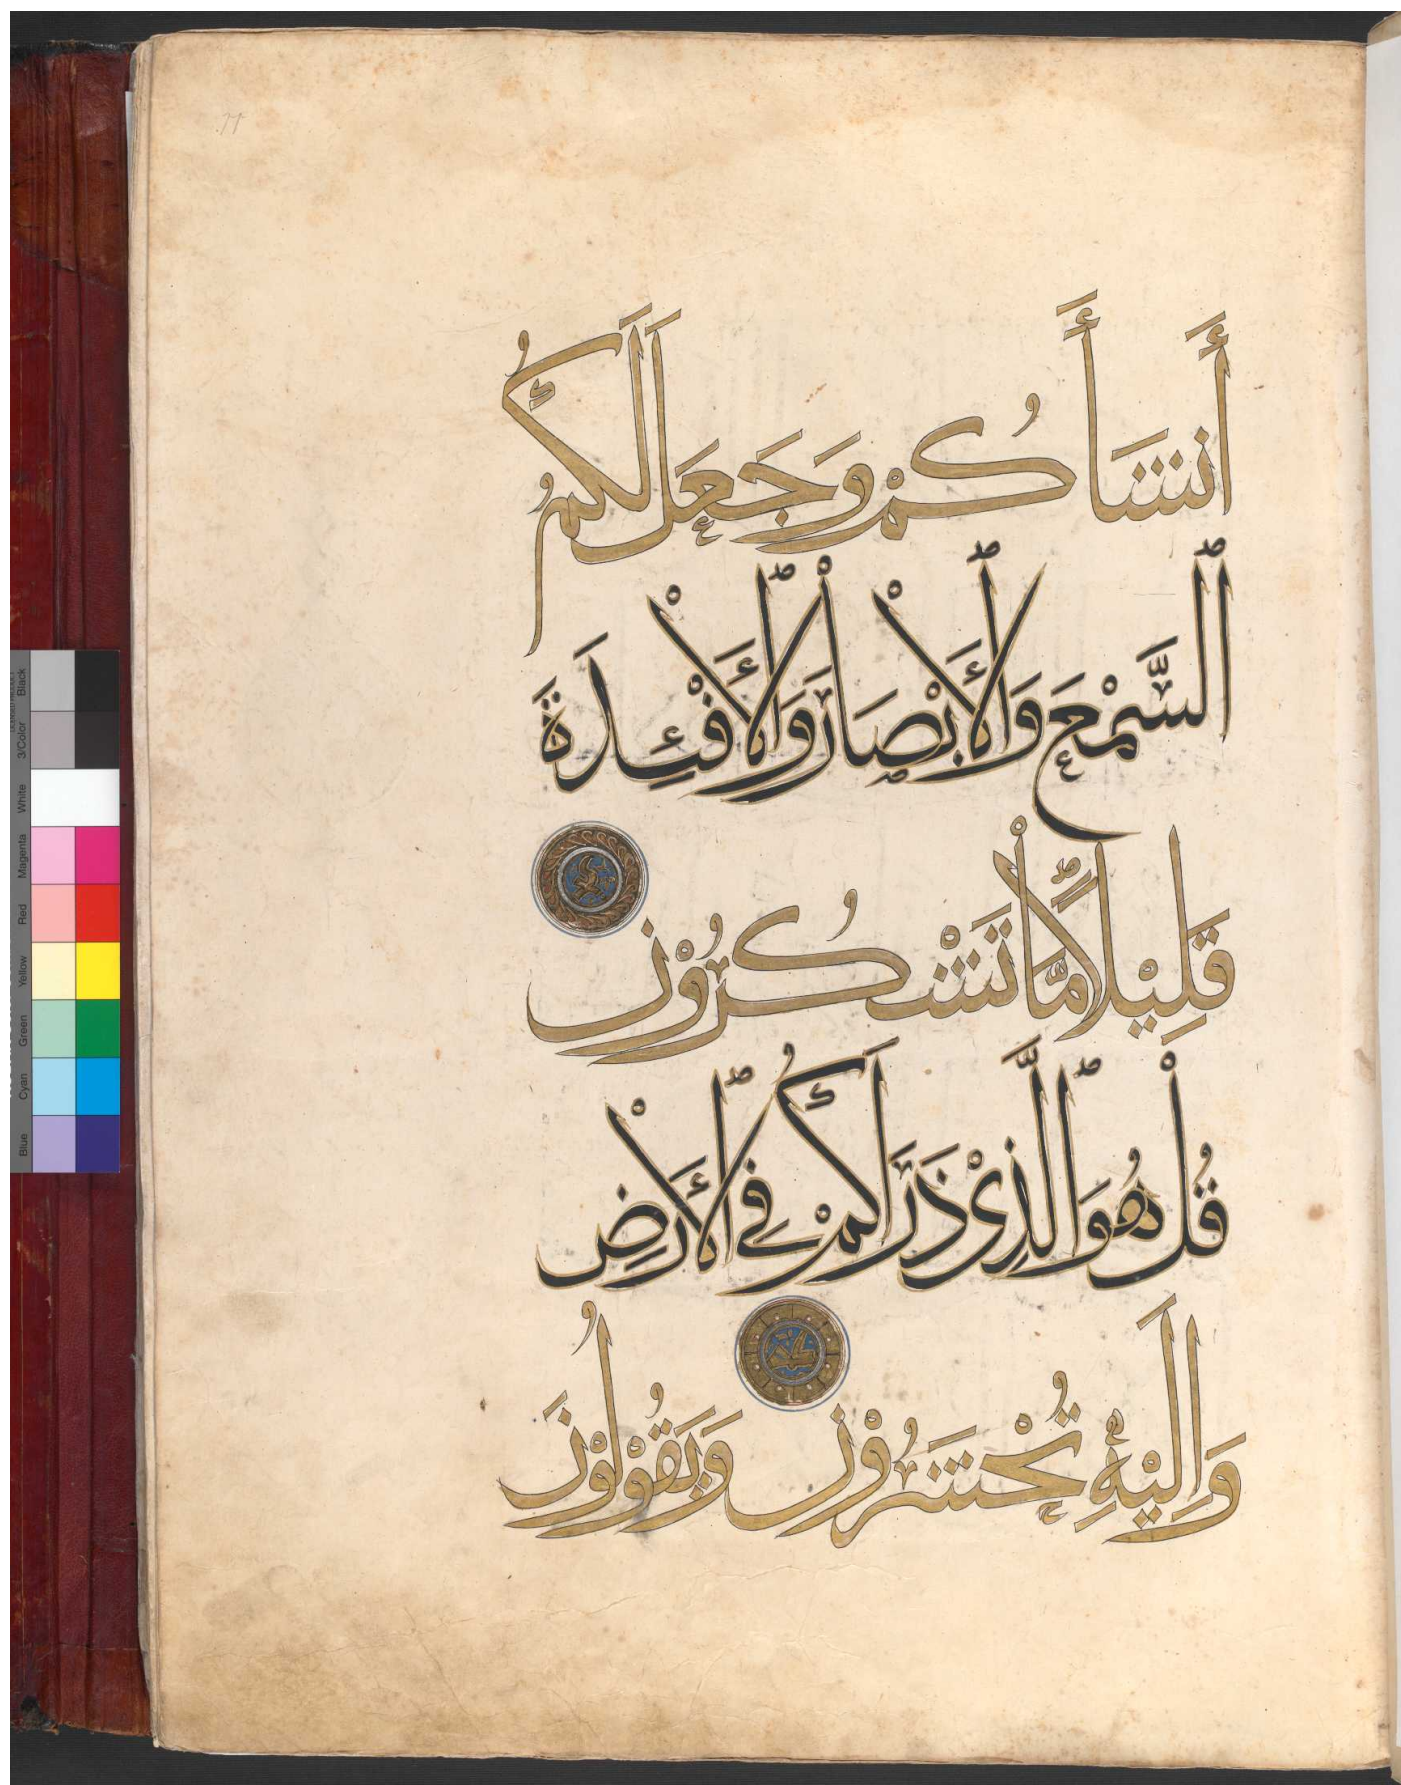 أَنشَأَكُمْ وَجَعَلَ لَكُمُ
ٱلسَّمْعَ وَٱلْأَبْصَارَ وَٱلْأَفْئِدَةَ
قَلِيْلًا مَّا تَشْكُرُوْنَ
قُلْ هُوَ ٱلَّذِىْ ذَرَاَكُمْ فِى ٱلْأَرْضِ
وَاِلَيْهِ تُحْشَرُوْنَ وَيَقُوْلُوْنَ
Blue Cyan Green Yellow Red Magenta White 3/Color Black